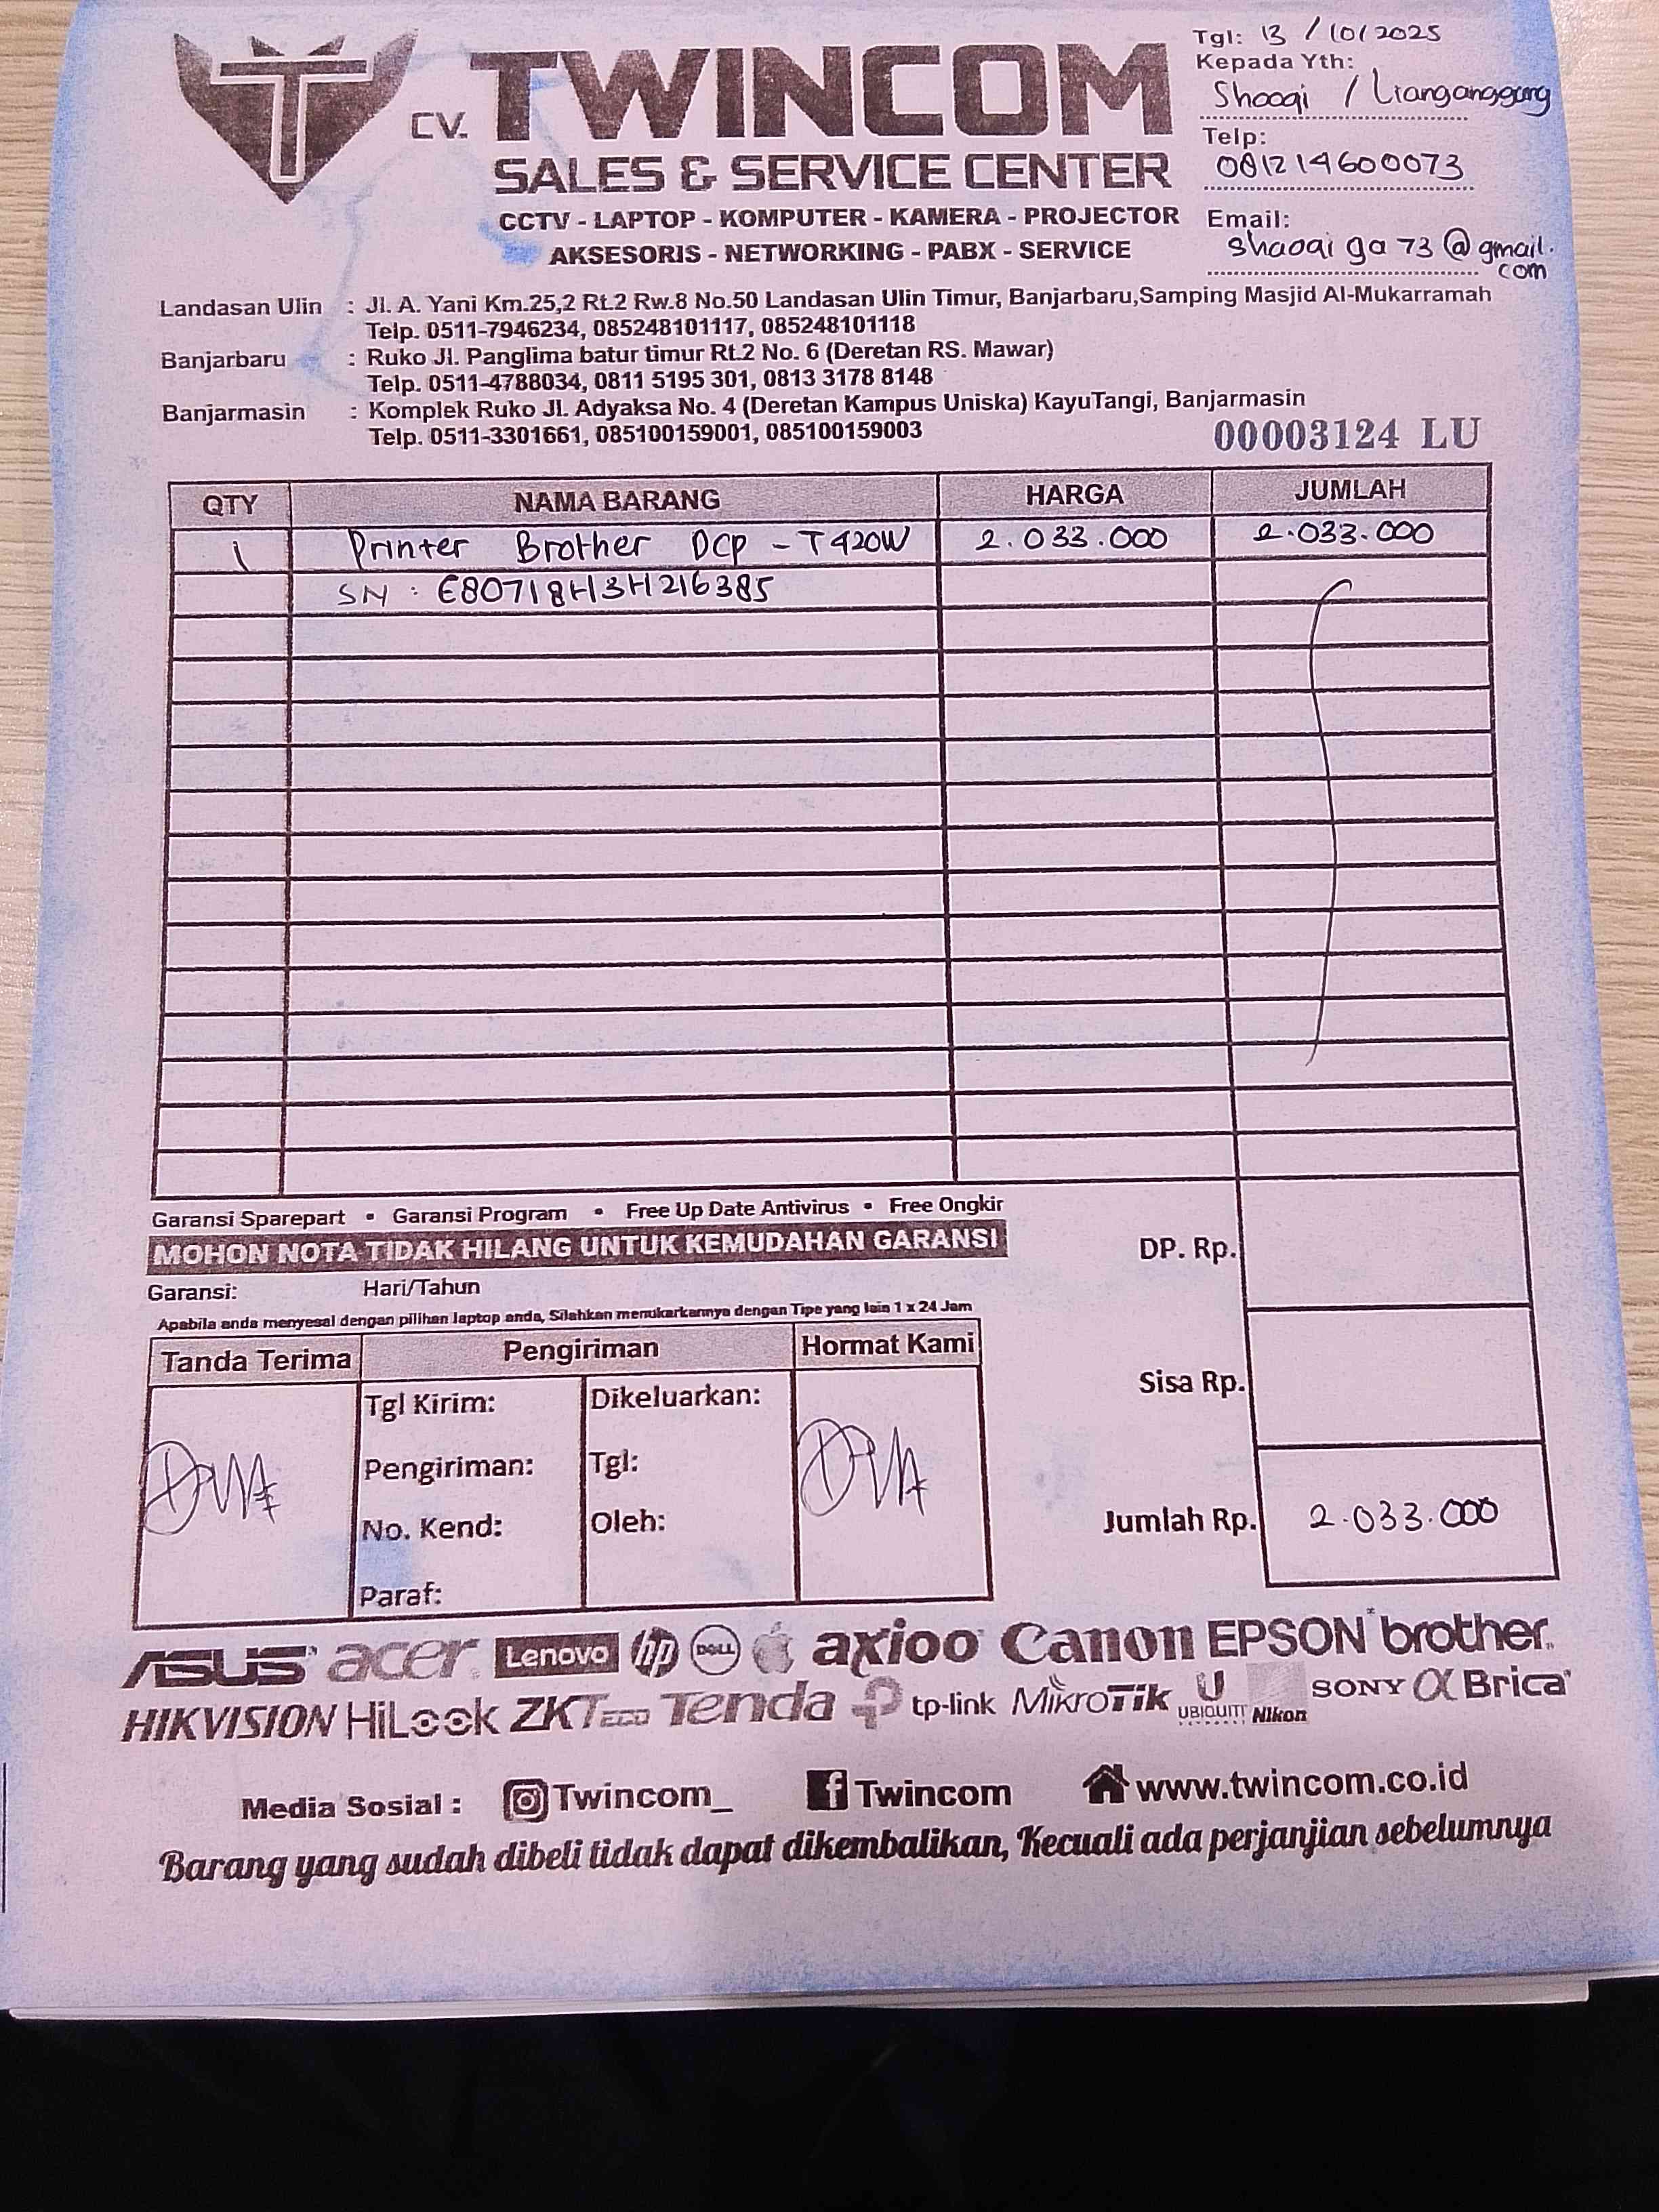 CV. TWINCOM
SALES & SERVICE CENTER
CCTV - LAPTOP - KOMPUTER - KAMERA - PROJECTOR
AKSESORIS - NETWORKING - PABX - SERVICE
Tgl: 13 / 10 / 2025
Kepada Yth:
Shooqi / Lianganggang
Telp:
081214600073
Email:
shaoqi ga 73 @ gmail.
com
Landasan Ulin : Jl. A. Yani Km.25,2 Rt.2 Rw.8 No.50 Landasan Ulin Timur, Banjarbaru,Samping Masjid Al-Mukarramah
Telp. 0511-7946234, 085248101117, 085248101118
Banjarbaru : Ruko Jl. Panglima batur timur Rt.2 No. 6 (Deretan RS. Mawar)
Telp. 0511-4788034, 0811 5195 301, 0813 3178 8148
Banjarmasin : Komplek Ruko Jl. Adyaksa No. 4 (Deretan Kampus Uniska) KayuTangi, Banjarmasin
Telp. 0511-3301661, 085100159001, 085100159003
00003124 LU
QTY NAMA BARANG HARGA JUMLAH
1 Printer Brother DCP - T420W 2.033.000 2.033.000
SN : E80718H3H216385
Garansi Sparepart • Garansi Program • Free Up Date Antivirus • Free Ongkir
MOHON NOTA TIDAK HILANG UNTUK KEMUDAHAN GARANSI
Garansi: Hari/Tahun
Apabila anda menyesal dengan pilihan laptop anda, Silahkan menukarkannya dengan Tipe yang lain 1 x 24 Jam
DP. Rp.
Sisa Rp.
Jumlah Rp. 2.033.000
Tanda Terima Pengiriman Hormat Kami
Tgl Kirim: Dikeluarkan:
Pengiriman: Tgl:
No. Kend: Oleh:
Paraf:
ASUS acer Lenovo hp DELL axioo Canon EPSON brother
HIKVISION HiLook ZKTeco Tenda tp-link MikroTik U UBIQUITI Nikon SONY α Brica
Media Sosial : Twincom_ f Twincom www.twincom.co.id
Barang yang sudah dibeli tidak dapat dikembalikan, Kecuali ada perjanjian sebelumnya